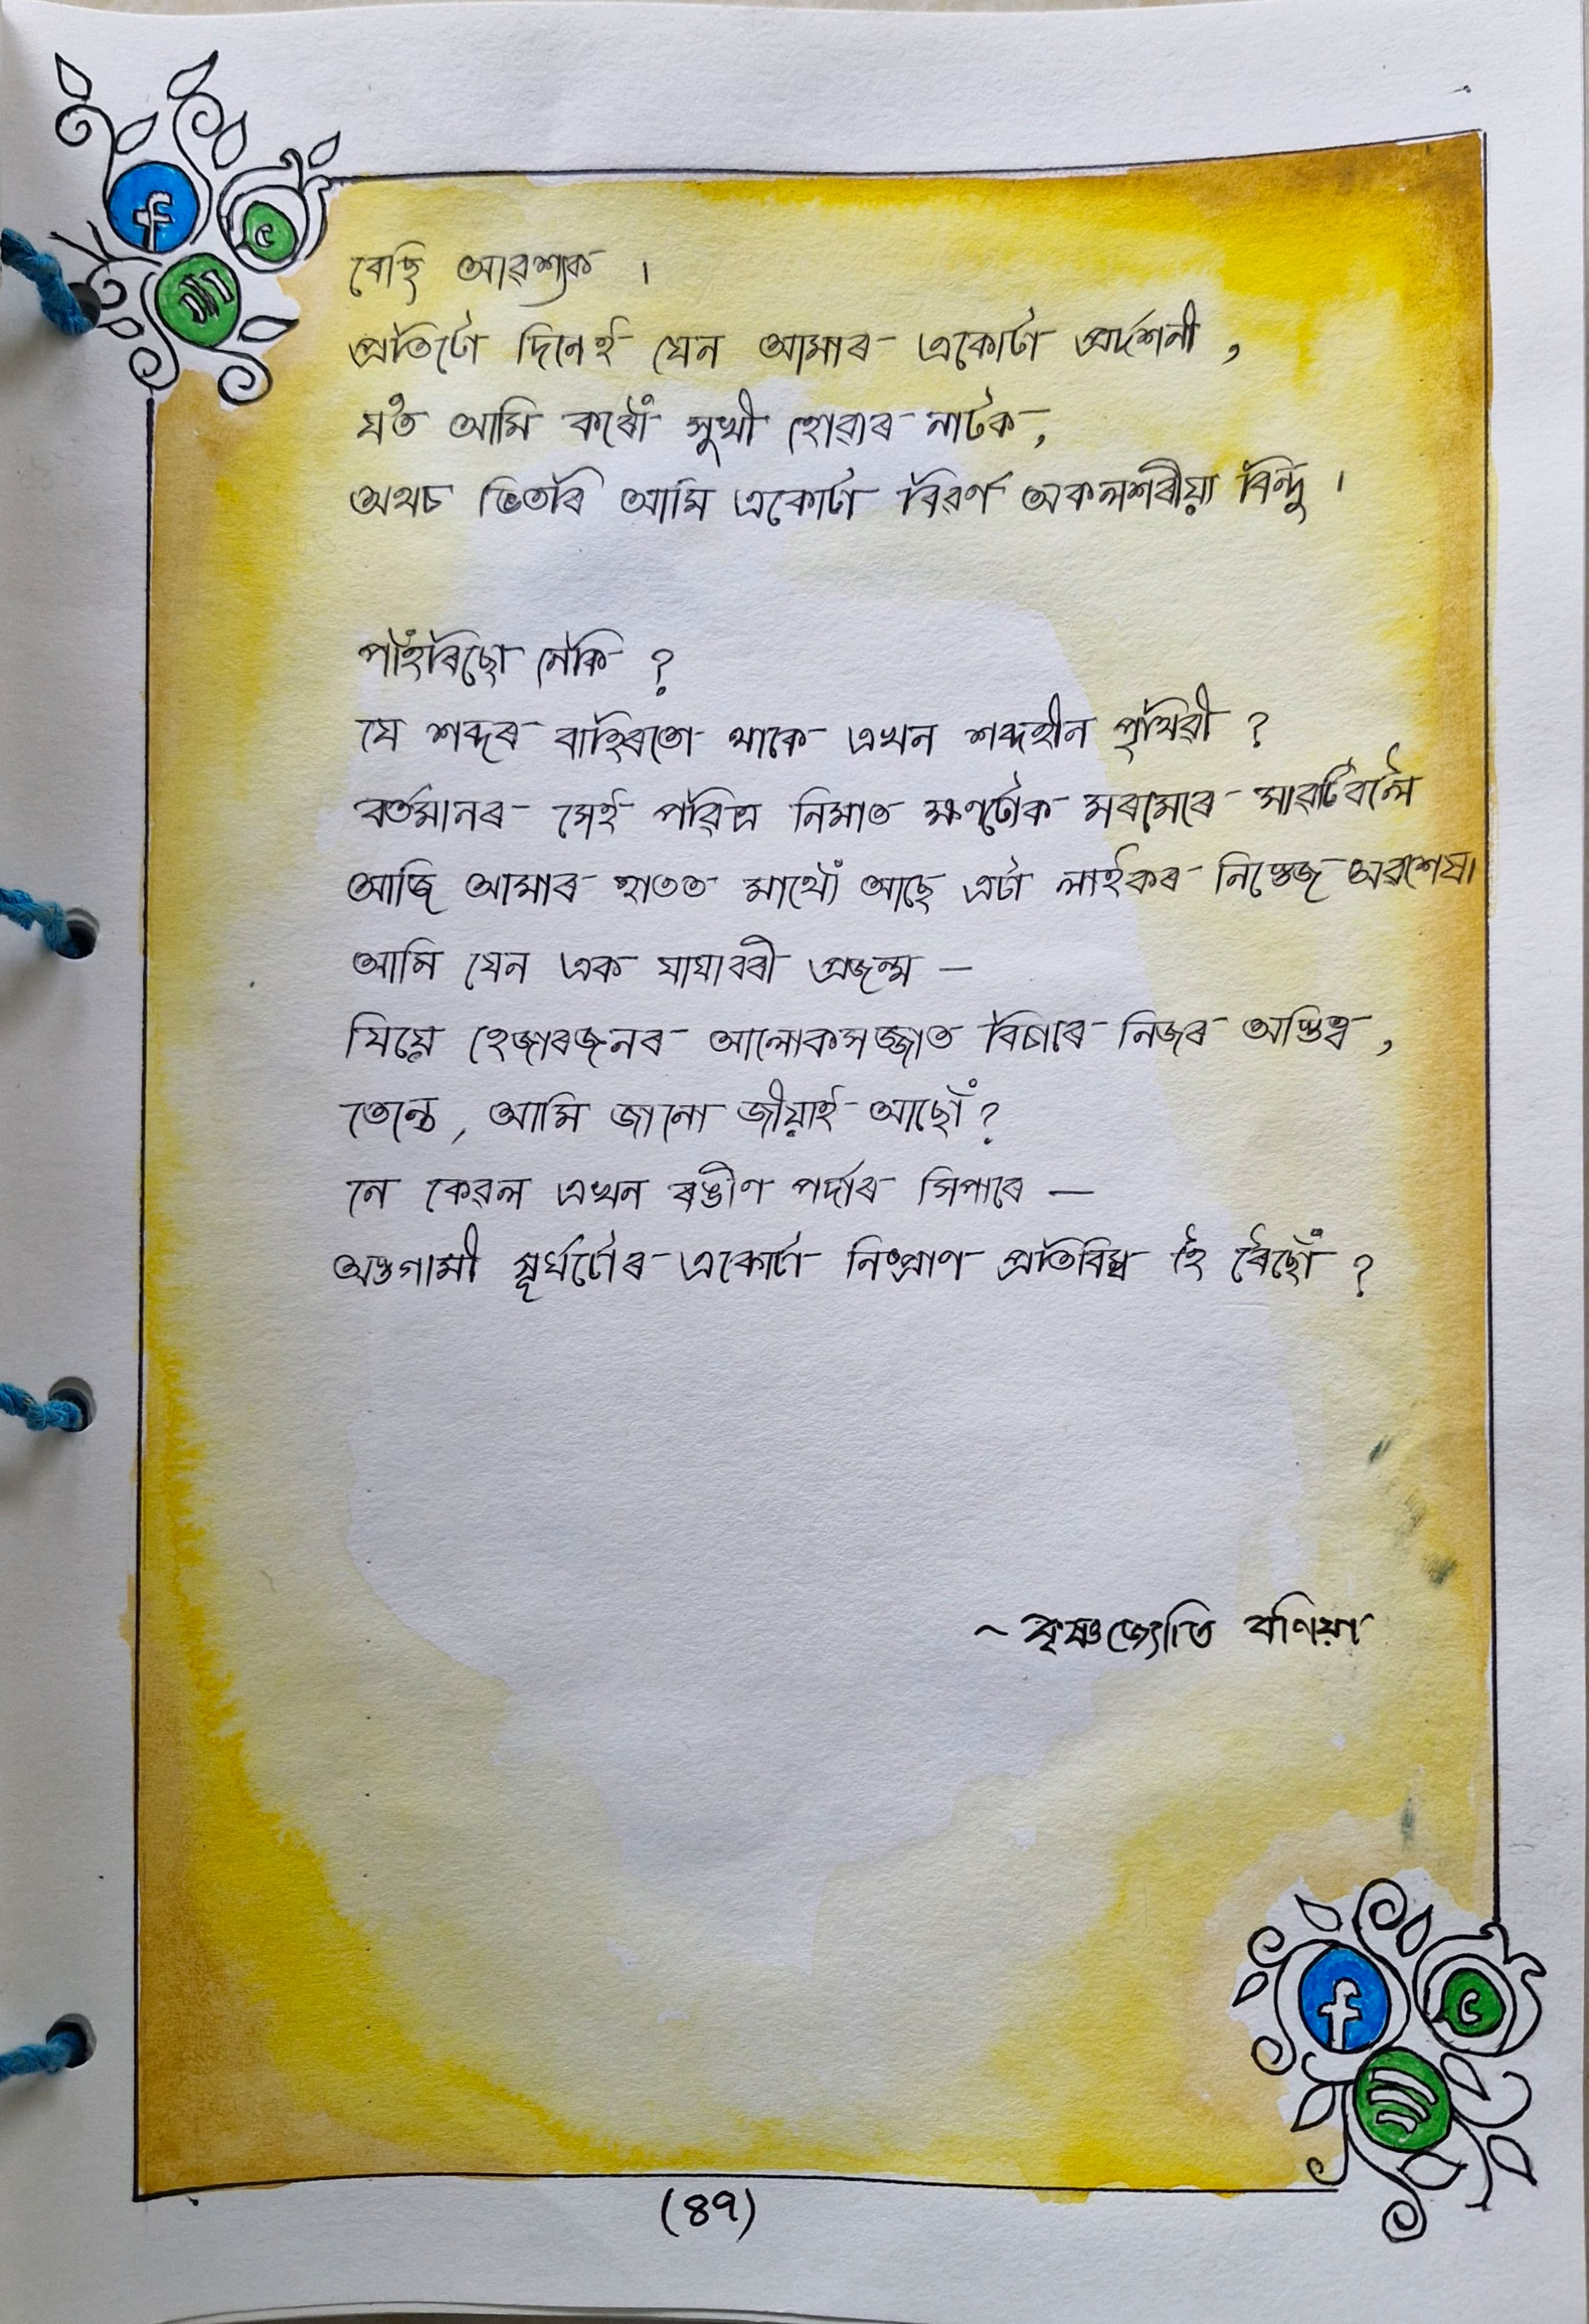 বেছি আৱশ্যক ।
প্ৰতিটো দিনেই যেন আমাৰ একোটা প্ৰদৰ্শনী ,
য'ত আমি কৰোঁ সুখী হোৱাৰ নাটক ,
অথচ ভিতৰি আমি একোটা বিৱৰ্ণ অকলশৰীয়া বিন্দু ।
পাহঁৰিছো নেকি ?
যে শব্দৰ বাহিৰতো থাকে এখন শব্দহীন পৃথিৱী ?
বৰ্তমানৰ সেই পৱিত্ৰ নিমাত ক্ষণটোক মৰমেৰে সাৱটিবলৈ
আজি আমাৰ হাতত মাথোঁ আছে এটা লাইকৰ নিস্তেজ অৱশেষ।
আমি যেন এক যাযাবৰী প্ৰজন্ম —
যিয়ে হেজাৰজনৰ আলোকসজ্জাত বিচাৰে নিজৰ অস্তিত্ব ,
তেন্তে , আমি জানো জীয়াই আছোঁ ?
নে কেৱল এখন ৰঙীণ পৰ্দাৰ সিপাৰে —
অস্তগামী সূৰ্যটোৰ একোটা নিষ্প্ৰাণ প্ৰতিবিম্ব হৈ ৰৈছোঁ ?
~ কৃষ্ণজ্যোতি বণিয়া
(৪৭)